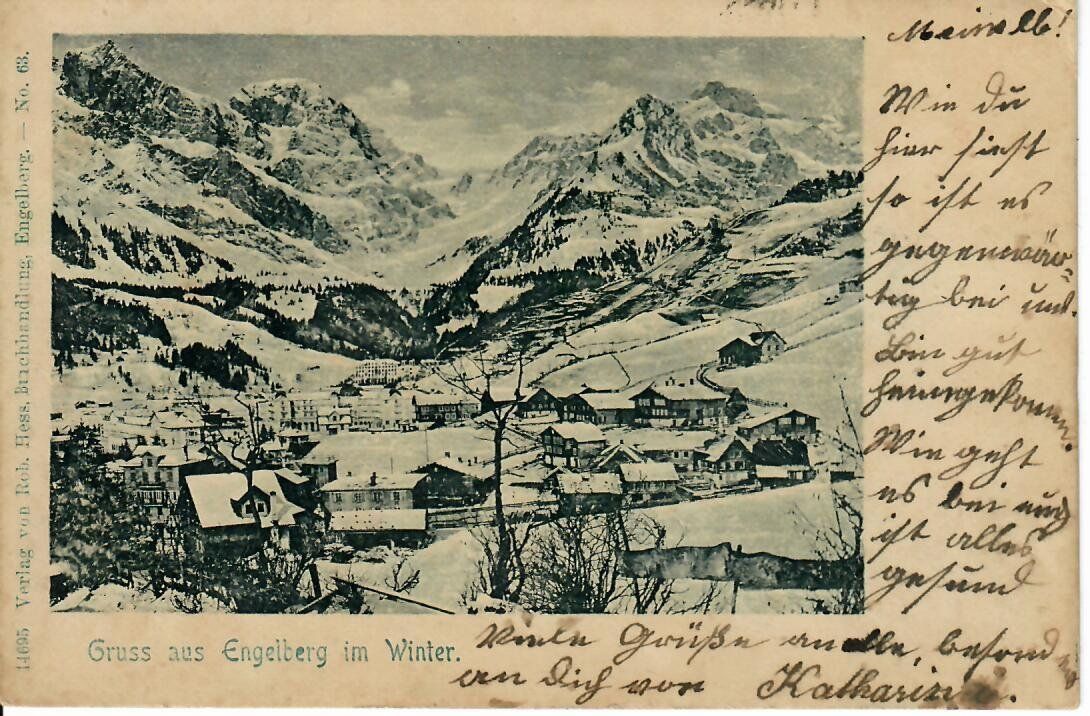 Mein lb!
Wie du
hier siehst
so ist es
gegenwär-
tig bei uns.
Bin gut
heimgekomm.
Wie geht
es bei euch
ist alles
gesund
Viele Grüße an alle, besond
an Dich von Katharin
Gruss aus Engelberg im Winter.
14695 Verlag von Rob. Hess, Buchhandlung, Engelberg. — No. 63.